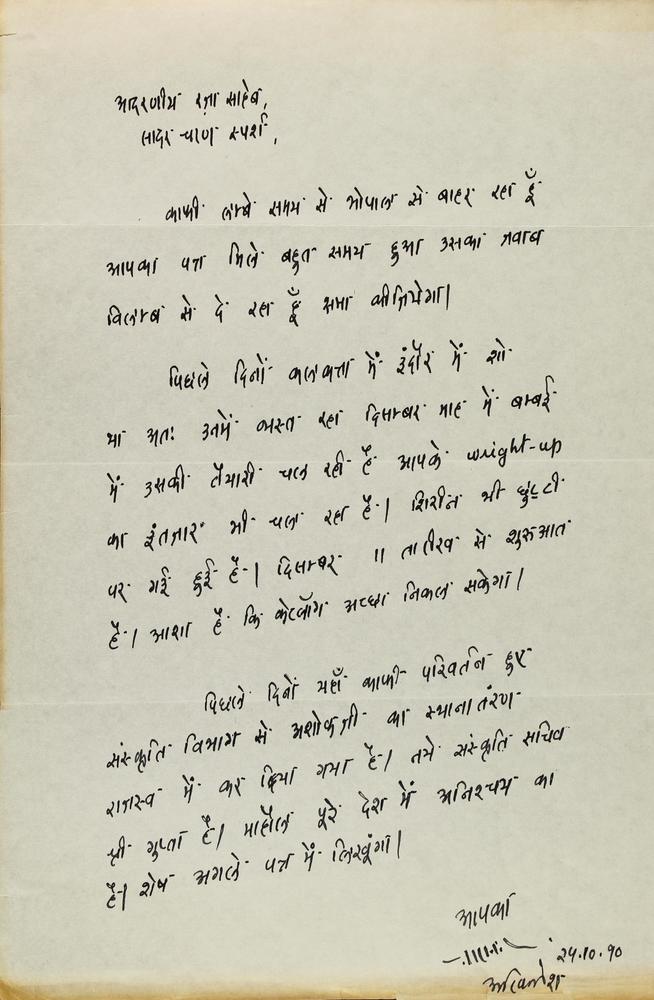 आदरणीय रज़ा साहेब,
सादर चरण स्पर्श,
काफी लम्बे समय से भोपाल से बाहर रहा हूँ
आपका पत्र मिले बहुत समय हुआ उसका जवाब
विलम्ब से दे रहा हूँ क्षमा कीजियेगा।
पिछले दिनों कलकत्ता में इंदौर में शो
था अतः उनमें व्यस्त रहा दिसम्बर माह में बम्बई
में उसकी तैयारी चल रही है आपके wright-up
का इंतज़ार भी चल रहा है। शिरीन भी छुट्टी
पर गई हुई है। दिसम्बर 11 तारीख से शुरुआत
है। आशा है कि केटलॉग अच्छा निकल सकेगा।
पिछले दिनों यहाँ काफी परिवर्तन हुए
संस्कृति विभाग से अशोकजी का स्थानांतरण
राजस्व में कर दिया गया है। नये संस्कृति सचिव
श्री गुप्ता है। माहौल पूरे देश में अनिश्चय का
है। शेष अगले पत्र में लिखूंगा।
आपका
अखिलेश
२५.10.90